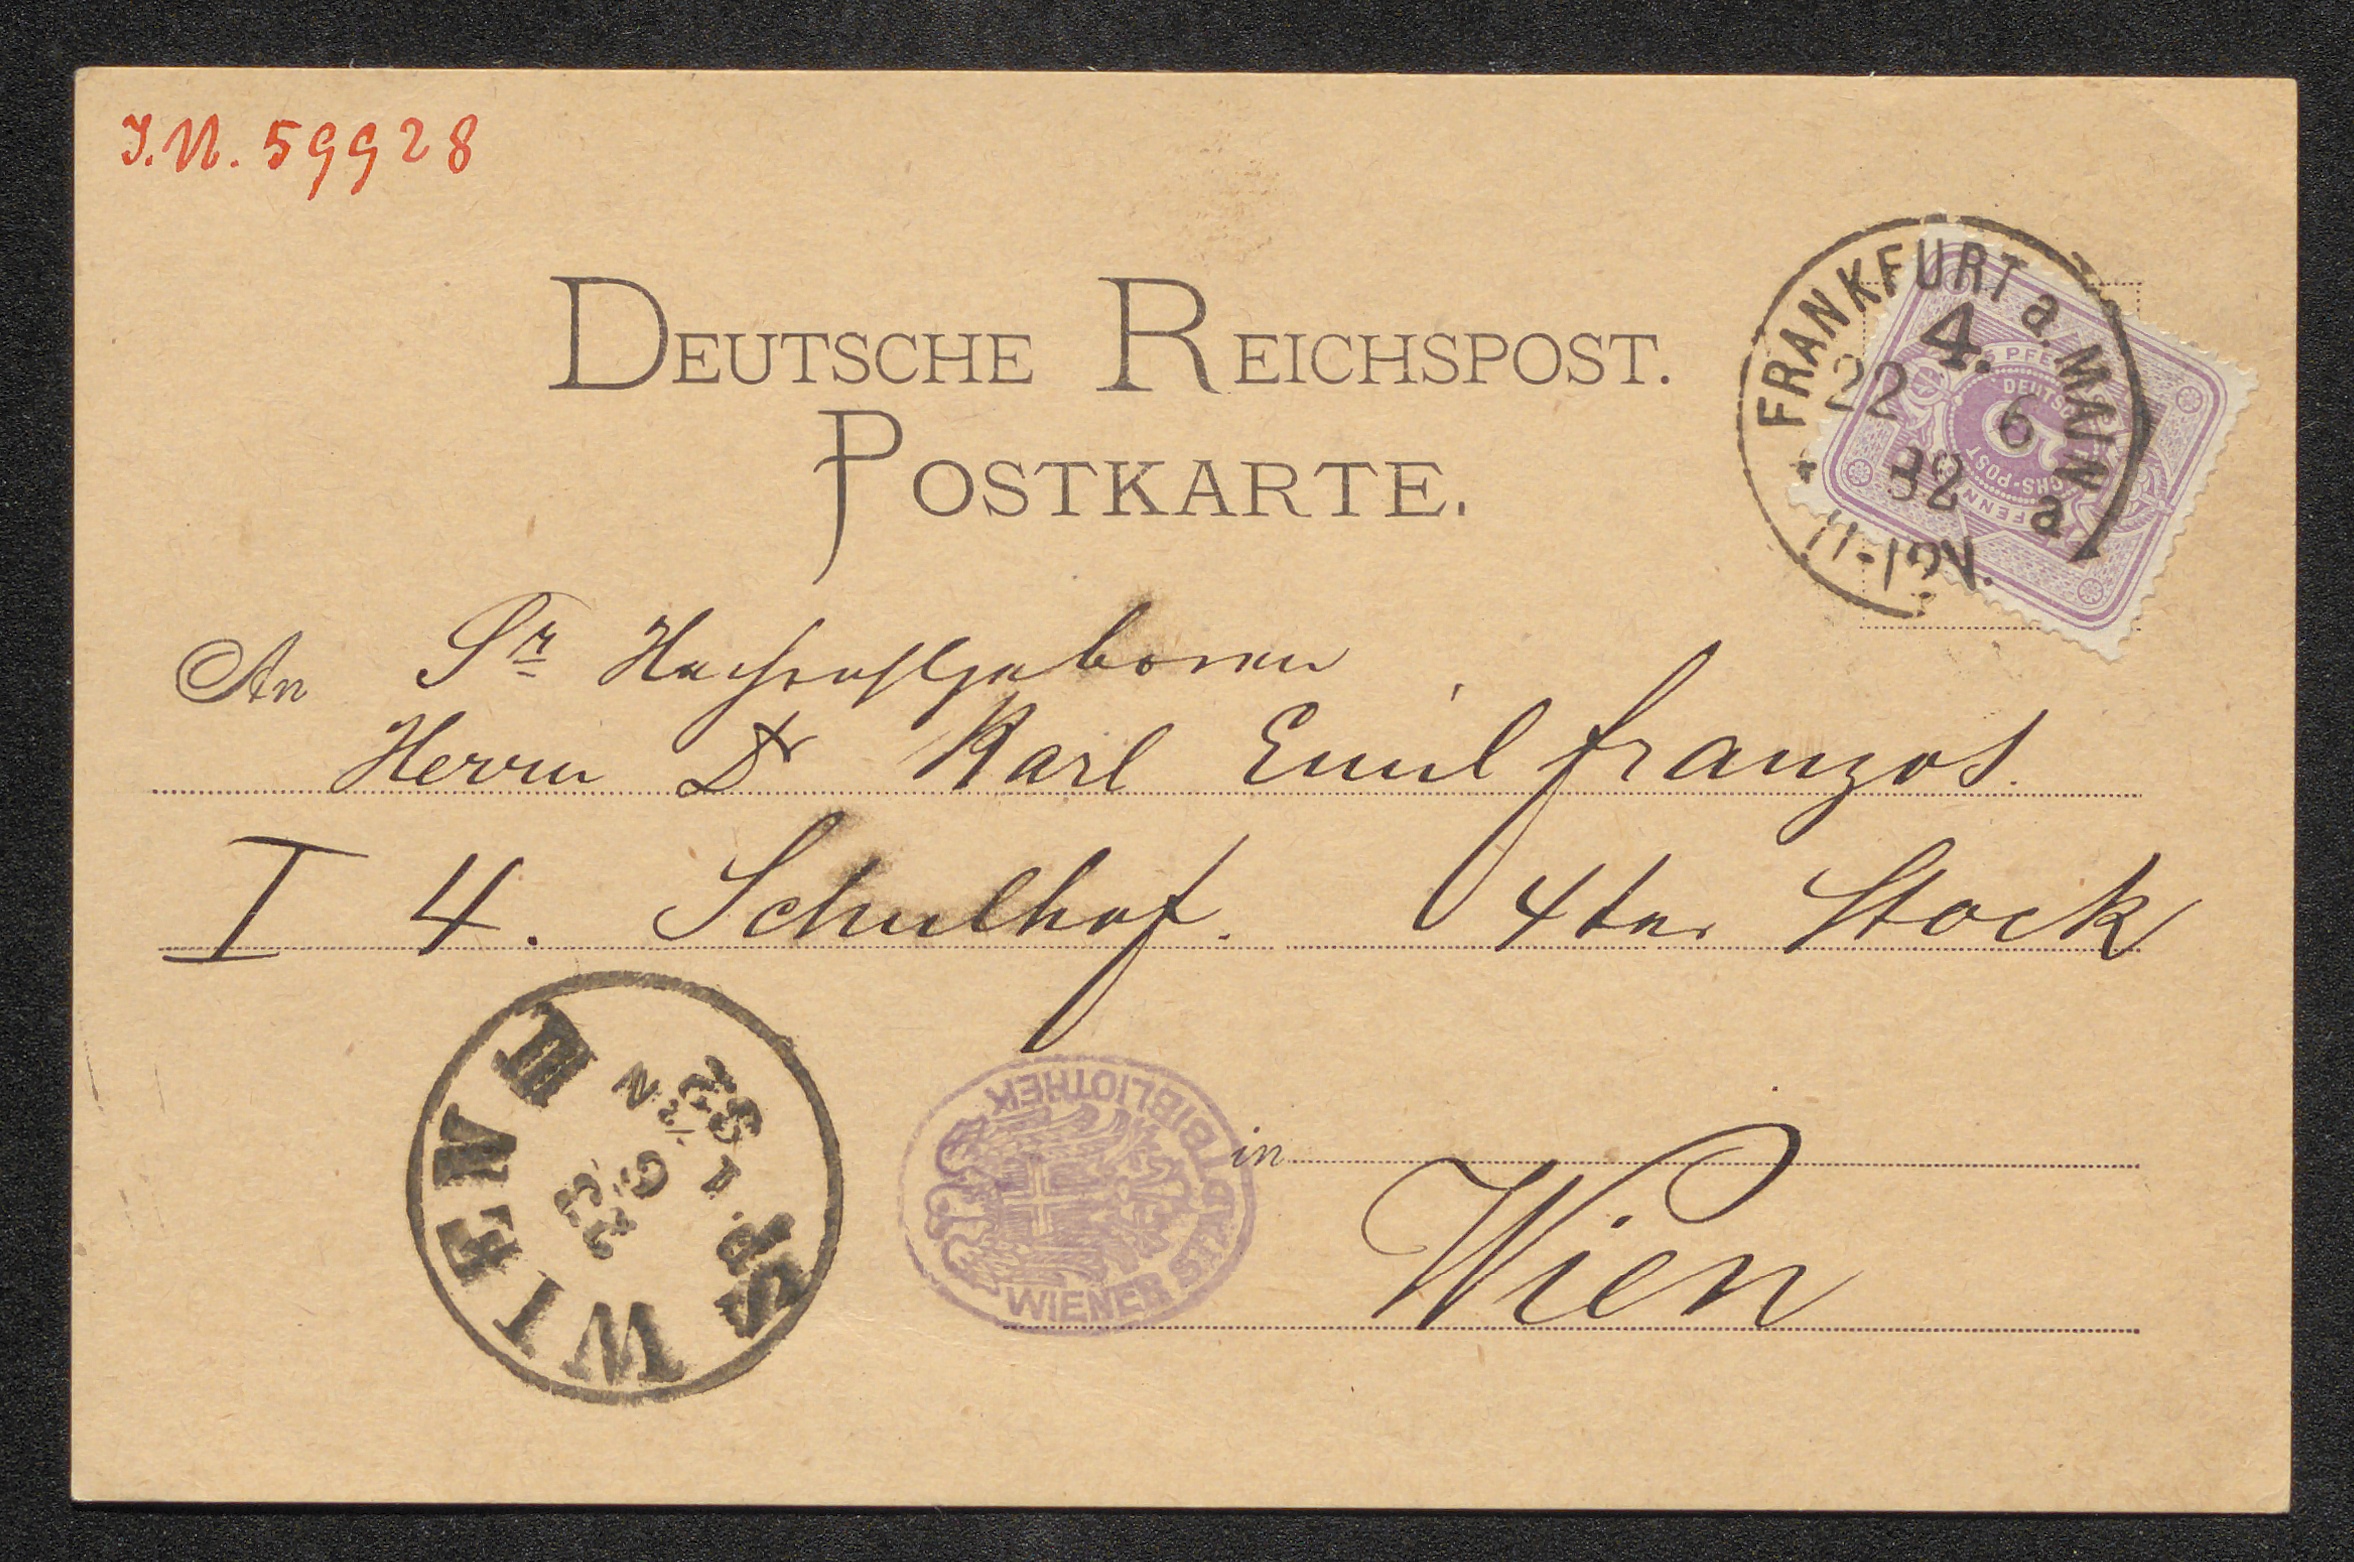 J.N. 59928
DEUTSCHE REICHSPOST.
POSTKARTE.
FRANKFURT a. MAIN
4.
22 6
82 a
11-12N.
5 PFENNIG
DEUTSCHE
REICHS-POST
PFENNIG
An Sr Hochwohlgeboren
Herrn Dr Karl Emil Franzos.
I 4. Schulhof. 4ter Stock
in
Wien
WIEN
23
6
82
WIENER STADTBIBLIOTHEK